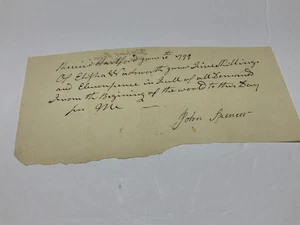 Hartford June 1799
Of Elisha Wadsworth four Nine Shillings
and Elevenpence in full of all Demand
From the Begining of the world to this Day
per Me
John Spencer